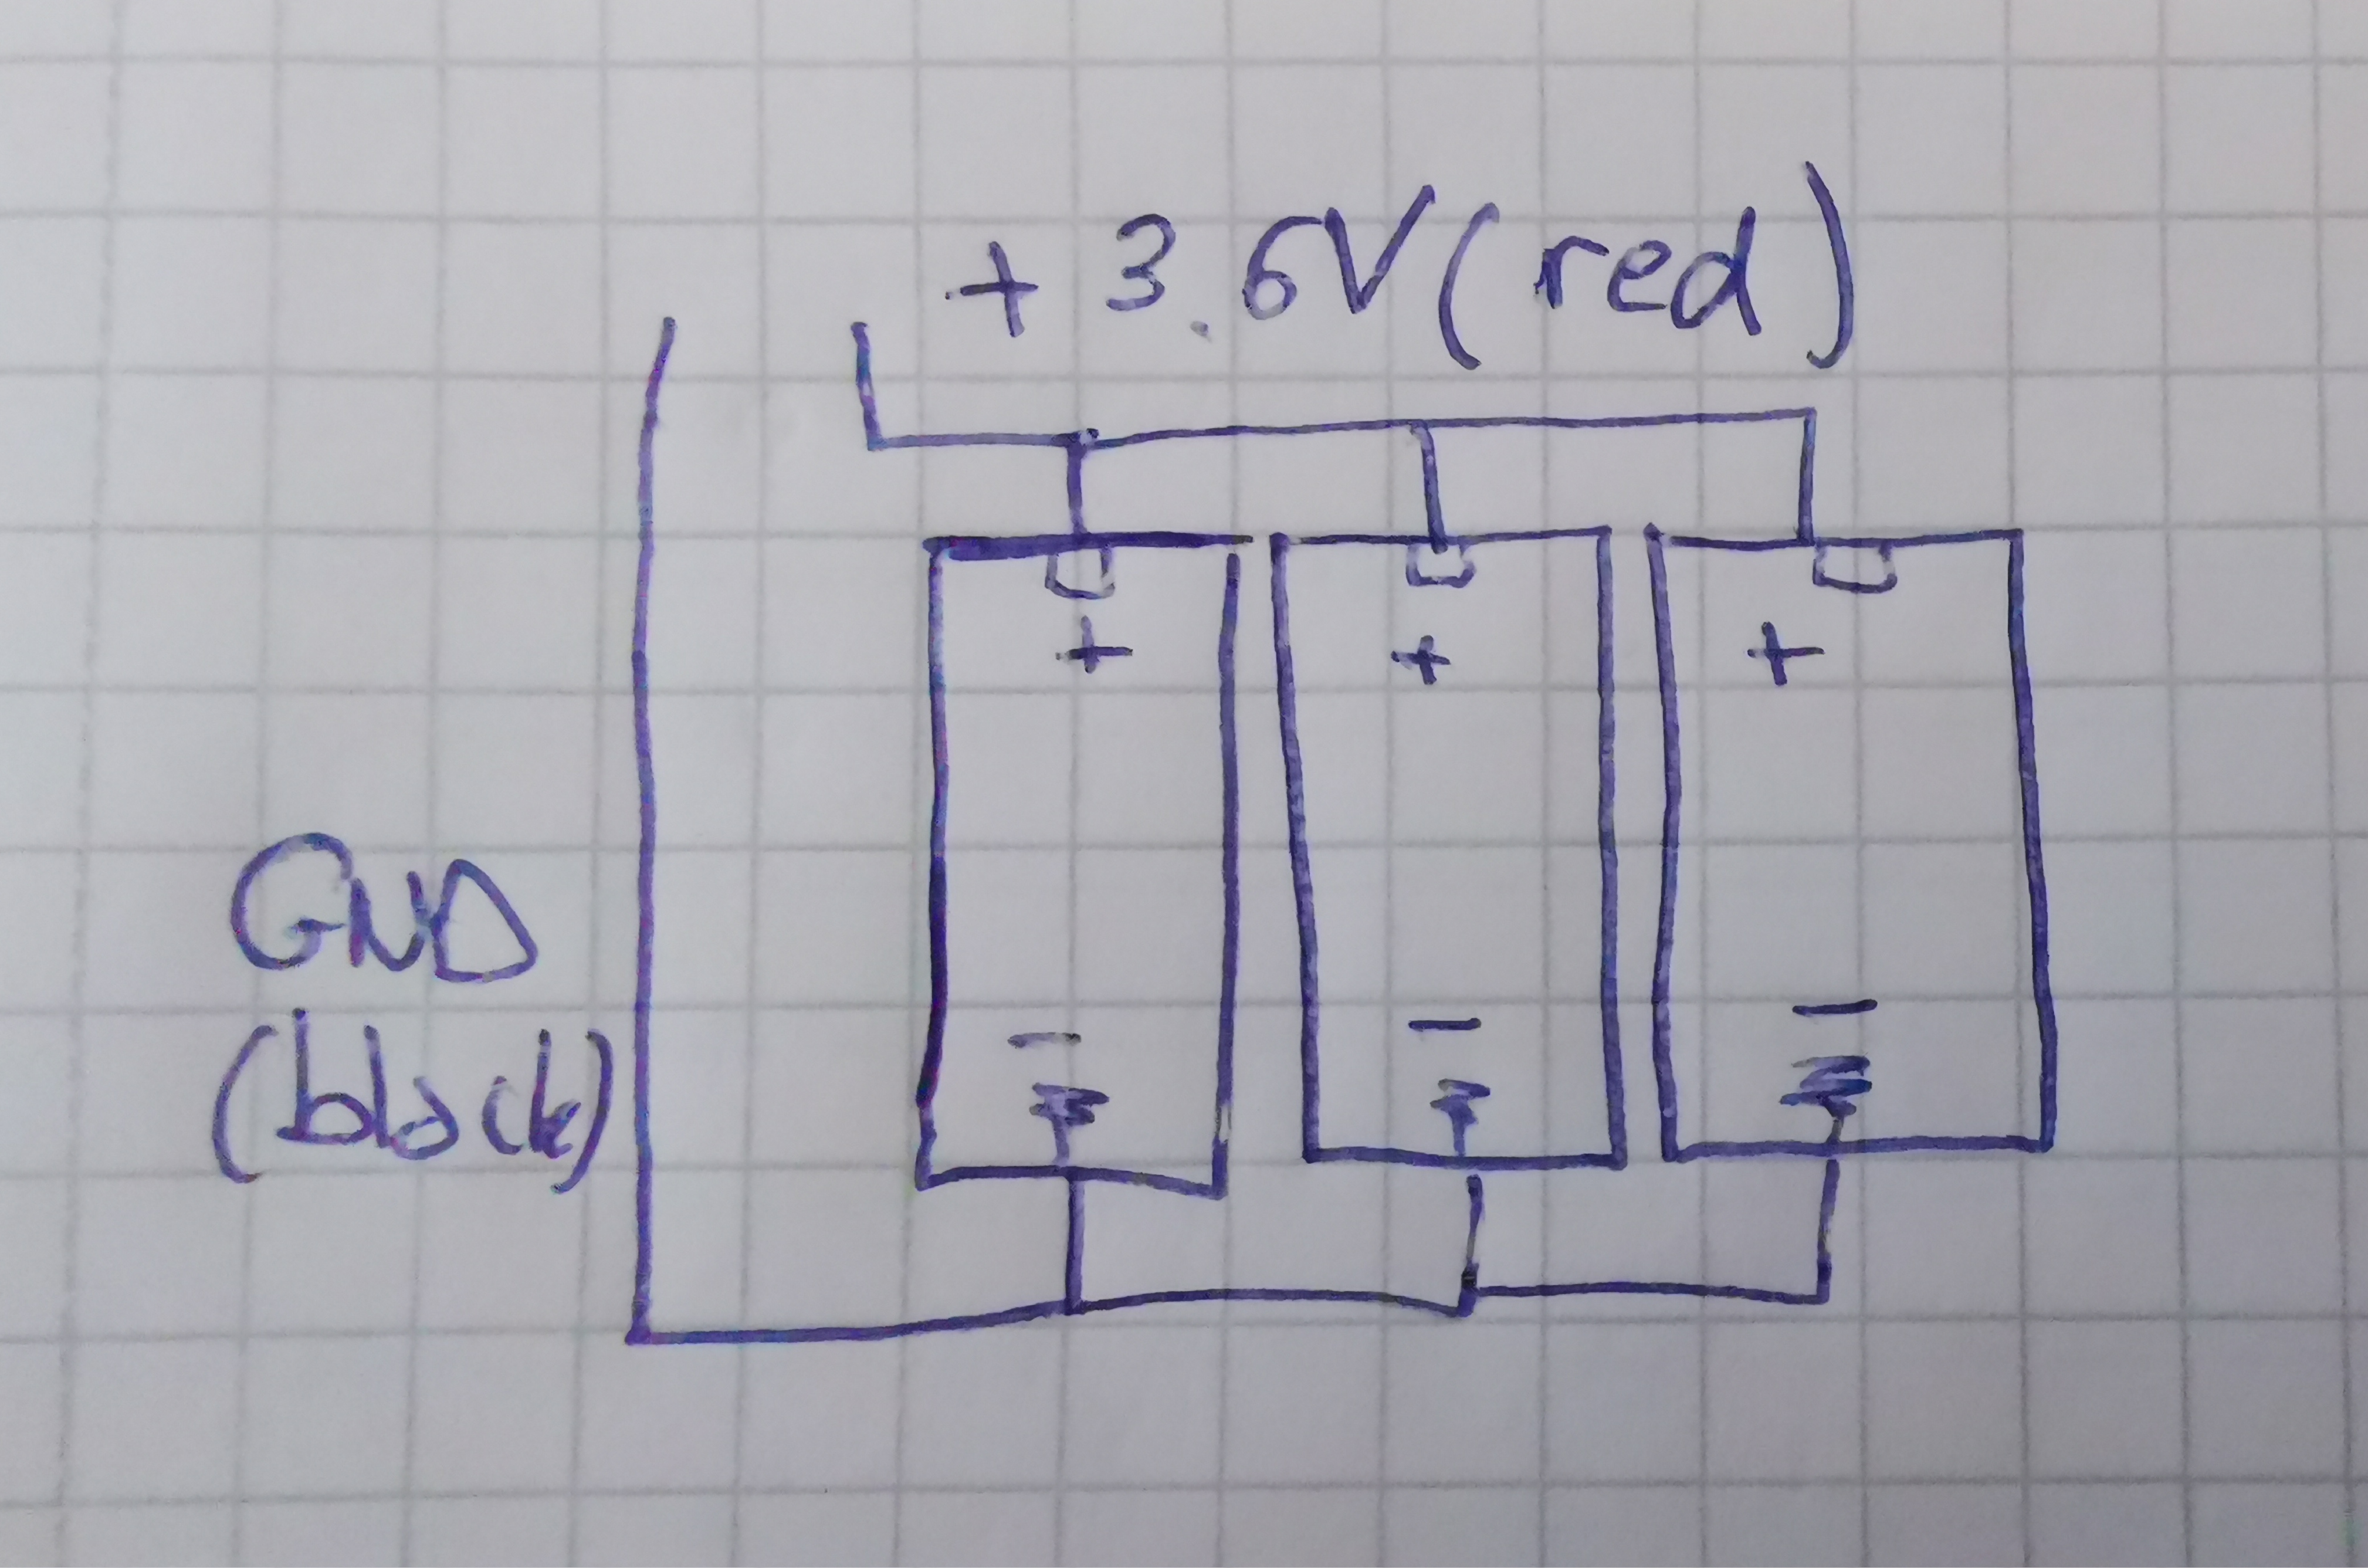 + 3.6V (red)
+ + +
GND
(black)
- - -